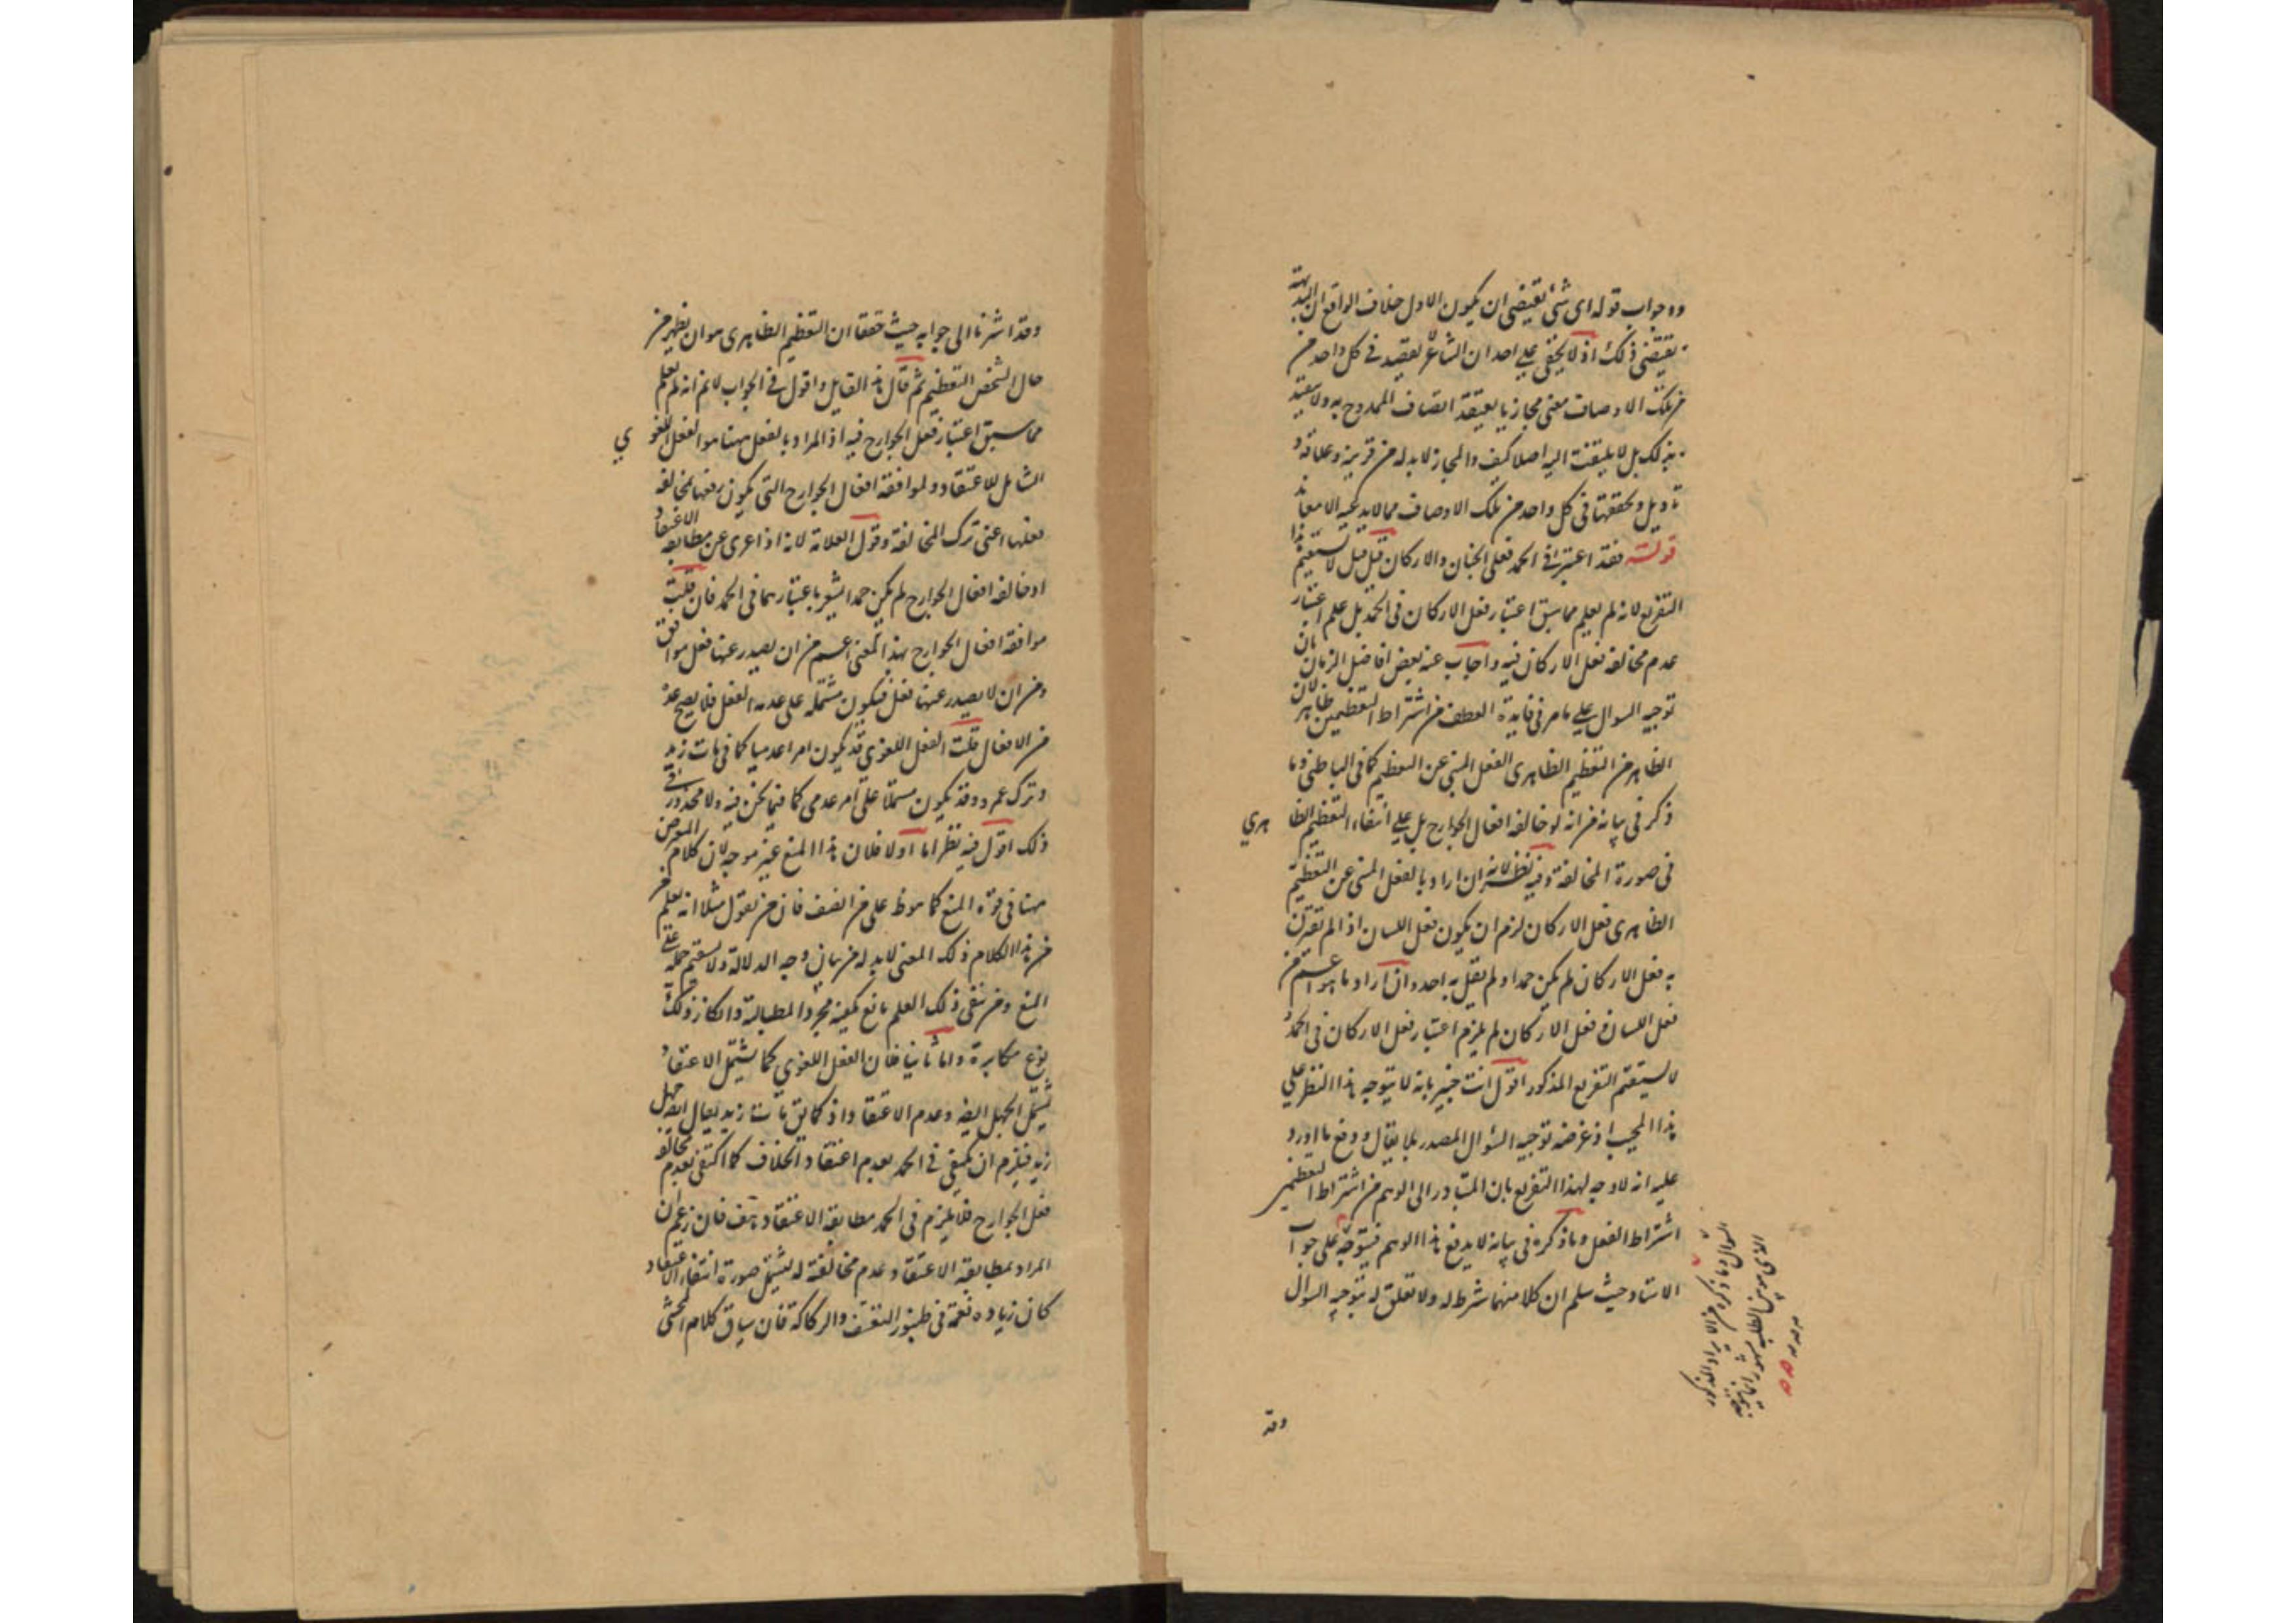 وه جواب قوله اى شئ يقتضى ان يكون الاول خلاف الواقع ان البديهة
يقتضى ذلك اذ لا يخفى على احد ان الشاعر يقصد فى كل واحد من
من تلك الاوصاف معنى مجازيا يعتقد اتصاف الممدوح به ولا يعتقد
بذلك بل لا يلتفت اليه اصلا كيف والمجاز لا بد له من قرينة وعلاقة و
تاويل وتحققها فى كل واحد من تلك الاوصاف مما لا يدعيه الا معاند
قوله فقد اعتبر فى الحمد فعل الجنان والاركان قيل قيل لا يستقيم هذا
التفريع لانه لم يعلم مما سبق اعتبار فعل الاركان فى الحمد بل علم اعتبار
عدم مخالفة فعل الاركان فيه واجاب عنه بعض افاضل الزمان بان
توجيه السوال على ما مر فى فايدة العطف من اشتراط التعظيمين ظاهر لان
الظاهر من التعظيم الظاهرى الفعل المنبئ عن التعظيم كما فى الباطنى وما
ذكر فى بيانه من انه لو خالفه افعال الجوارح بل على انتفاء التعظيم الظاهري
فى صورة المخالفة وفيه نظر لانه ان اراد بالفعل المنبئ عن التعظيم
الظاهرى فعل الاركان لزم ان يكون فعل اللسان اذا لم تقترن
به فعل الاركان لم يكن حمدا ولم يقل به احد وان اراد ما هو اعم من
فعل اللسان وفعل الاركان لم يلزم اعتبار فعل الاركان فى الحمد و
لا يستقيم التفريع المذكور اقول انت خبير بانه لا يتوجه هذا النظر على
هذا المجيب اذ غرضه توجيه السؤال المصدر بلا يقال ودفع ما اورد
عليه انه لا وجه لهذا التفريع بان المتبادر الى الوهم من اشتراط التعظيمين
اشتراط الفعل وما ذكره فى بيانه لا يدفع هذا الوهم فيتوجه على جواب
الاستاد حيث سلم ان كلا منهما شرط له ولا تعلق له بتوجيه السوال
السوال وما ذكره من الايراد المذكور
وقد
وقد اشرنا الى جوابه حيث حققنا ان التعظيم الظاهرى هو ان يظهر من
حال الشخص التعظيم ثم قال هذا القايل واقول فى الجواب لا نم انه لم يعلم
مما سبق اعتبار فعل الجوارح فيه اذ المراد بالفعل ههنا هو الفعل اللغوي
الشامل للاعتقاد ولموافقة افعال الجوارح التى يكون رفعها مخالفة
فعلها اعنى ترك المخالفة وقول العلامة لانه اذا عرى عن مطابقة الاعتقاد
او خالفه افعال الجوارح لم يكن حمدا يشعر باعتبارهما فى الحمد فان قلت
موافقة افعال الجوارح بهذا المعنى اعم من ان يصدر عنها فعل موافق
ومن ان لا يصدر عنها فعل فيكون مشتملة على عدم الفعل فلا يصح عده
من الافعال قلت الفعل اللغوى قد يكون امرا عدميا كما فى مات زيد
وترك عمرو وقد يكون مشتملا على امر عدمى كما فيما نحن فيه ولا محذور فى
ذلك اقول فيه نظر اما اولا فلان هذا المنع غير موجه لان كلام المعترض
ههنا فى قوة المنع كما هو ظ على من انصف فان من يقول مثلا انه يعلم
من هذا الكلام ذلك المعنى لا بد له من بيان وجه الدلالة ولا يستقيم حمله على
المنع ومن نفى ذلك العلم مانع يكفيه مجرد المطالبة وانكار ذلك
نوع مكابرة واما ثانيا فلان الفعل اللغوي كما يشتمل الاعتقاد
يشتمل الجهل ايضا وعدم الاعتقاد اذ كما يق مات زيد يقال ايضا جهل
زيد فيلزم ان يكتفى فى الحمد بعدم اعتقاد الخلاف كما اكتفى بعدم مخالفة
فعل الجوارح فلا يلزم فى الحمد مطابقة الاعتقاد هف فان زعم ان
المراد بمطابقة الاعتقاد عدم مخالفته له ليشتمل صورة انتفاء الاعتقاد
كان زيادة نغمة فى طنبور التعسف والركاكة فان سياق كلام المحشى